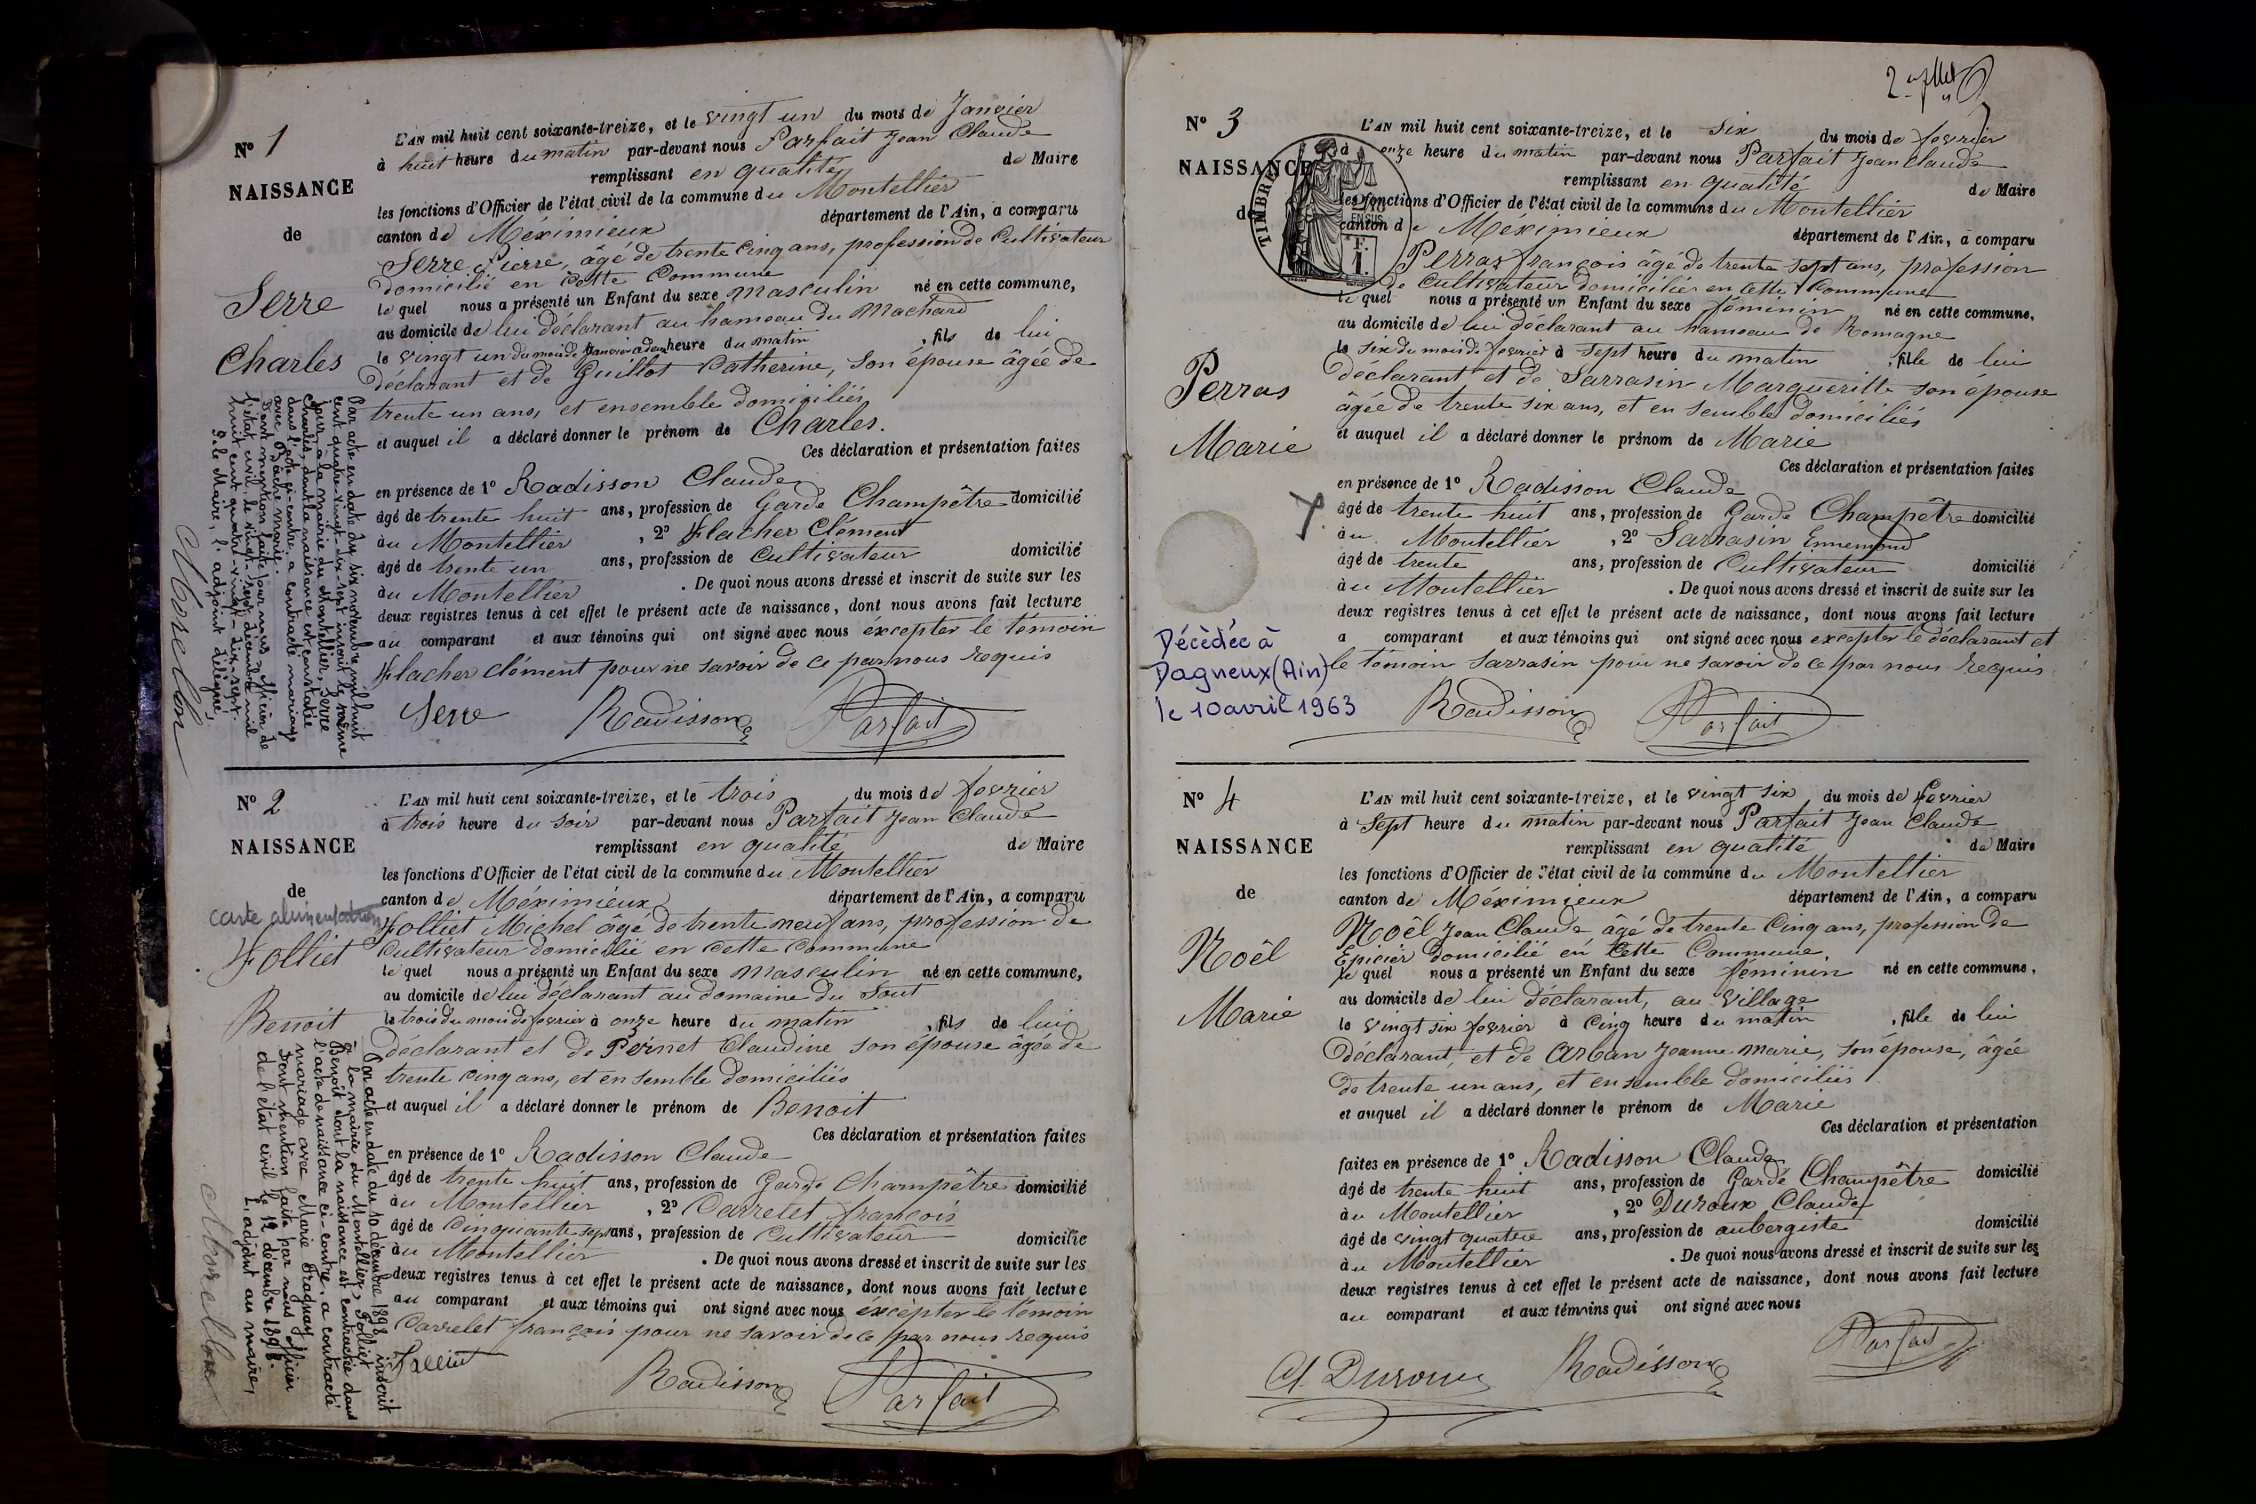 N° 1
NAISSANCE
de
Serre
Charles
L'AN mil huit cent soixante-treize, et le vingt un du mois de Janvier
à huit heure du matin par-devant nous Parfait Jean Claude
remplissant en qualité de Maire
les fonctions d'Officier de l'état civil de la commune du Montellier
canton de Méximieux département de l'Ain, a comparu
Serre Pierre, âgé de trente cinq ans, profession de Cultivateur
domicilié en cette Commune
le quel nous a présenté un Enfant du sexe masculin né en cette commune,
au domicile de lui déclarant au hameau du Machard
le vingt un du mois de Janvier à deux heure du matin, fils de lui
déclarant et de Guillot Catherine, son épouse âgée de
trente un ans, et ensemble domiciliés
et auquel il a déclaré donner le prénom de Charles.
Ces déclaration et présentation faites
en présence de 1° Radisson Claude
âgé de trente huit ans, profession de Garde Champêtre domicilié
au Montellier, 2° Flacher Clément
âgé de trente un ans, profession de Cultivateur domicilié
au Montellier. De quoi nous avons dressé et inscrit de suite sur les
deux registres tenus à cet effet le présent acte de naissance, dont nous avons fait lecture
au comparant et aux témoins qui ont signé avec nous éxcepter le témoin
Flacher Clément pour ne savoir de ce par nous requis
Serre Radisson Parfait
Par acte en date du six novembre mil huit
cent quatre-vingt-dix-sept inscrit le même
jour à la mairie du Montellier, Serre
Charles, dont la naissance est constatée
dans l'acte ci-contre, a contracté mariage
avec Marie.
Dont mention faite par nous officier de
l'état civil, le vingt-sept décembre mil
huit cent quatre-vingt-dix-sept.
P. le Maire, l'adjoint délégué,
N° 2
NAISSANCE
de
carte alimentation
Folliet
Benoit
L'AN mil huit cent soixante-treize, et le trois du mois de fevrier
à trois heure du soir par-devant nous Parfait Jean Claude
remplissant en qualité de Maire
les fonctions d'Officier de l'état civil de la commune du Montellier
canton de Méximieux département de l'Ain, a comparu
Folliet Michel âgé de trente neuf ans, profession de
Cultivateur domicilié en cette commune
le quel nous a présenté un Enfant du sexe masculin né en cette commune,
au domicile de lui déclarant au domaine du Sout
le trois du mois de fevrier à onze heure du matin, fils de lui
déclarant et de Pernet Claudine son épouse âgée de
trente cinq ans, et ensemble domiciliés
et auquel il a déclaré donner le prénom de Benoit
Ces déclaration et présentation faites
en présence de 1° Radisson Claude
âgé de trente huit ans, profession de Garde Champêtre domicilié
au Montellier, 2° Carrelet françois
âgé de Cinquante sept ans, profession de Cultivateur domicilié
au Montellier. De quoi nous avons dressé et inscrit de suite sur les
deux registres tenus à cet effet le présent acte de naissance, dont nous avons fait lecture
au comparant et aux témoins qui ont signé avec nous éxcepter le témoin
Carrelet françois pour ne savoir de ce par nous requis
Radisson Parfait
Par acte en date du 10 décembre 1898 inscrit
à la mairie du Montellier, Folliet
Benoit dont la naissance est contractée dans
l'acte de naissance ci-contre, a contracté
mariage avec Marie
Dont mention faite par nous officier
de l'état civil le 12 décembre 1898.
L'adjoint au maire,
N° 3
NAISSANCE
de
TIMBRE
EN SUS
Perras
Marie
L'AN mil huit cent soixante-treize, et le Six du mois de fevrier
à onze heure du matin par-devant nous Parfait Jean Claude
remplissant en qualité de Maire
les fonctions d'Officier de l'état civil de la commune du Montellier
canton de Méximieux département de l'Ain, a comparu
Perras françois âgé de trente sept ans, profession
de Cultivateur domicilié en cette Commune
le quel nous a présenté un Enfant du sexe féminin né en cette commune,
au domicile de lui déclarant au hameau de Romagne
le six du mois de fevrier à sept heure du matin, fille de lui
déclarant et de Sarrasin Marguerite son épouse
âgée de trente six ans, et ensemble domiciliés
et auquel il a déclaré donner le prénom de Marie
Ces déclaration et présentation faites
en présence de 1° Radisson Claude
âgé de trente huit ans, profession de Garde Champêtre domicilié
au Montellier, 2° Sarrasin Ennemond
âgé de trente ans, profession de Cultivateur domicilié
au Montellier. De quoi nous avons dressé et inscrit de suite sur les
deux registres tenus à cet effet le présent acte de naissance, dont nous avons fait lecture
a comparant et aux témoins qui ont signé avec nous excepter le déclarant et
le témoin Sarrasin pour ne savoir de ce par nous requis
Radisson Parfait
Décédée à
Dagneux (Ain)
le 10 avril 1963
N° 4
NAISSANCE
de
Noël
Marie
L'AN mil huit cent soixante-treize, et le vingt six du mois de fevrier
à Sept heure du matin par-devant nous Parfait Jean Claude
remplissant en qualité de Maire
les fonctions d'Officier de l'état civil de la commune du Montellier
canton de Méximieux département de l'Ain, a comparu
Noël Jean Claude âgé de trente Cinq ans, profession de
Epicier domicilié en cette Commune,
le quel nous a présenté un Enfant du sexe féminin né en cette commune,
au domicile de lui déclarant, au village
le vingt six fevrier à Cinq heure du matin, fille de lui
déclarant, et de Arban Jeanne Marie, son épouse, âgée
de trente un ans, et ensemble domiciliés
et auquel il a déclaré donner le prénom de Marie
Ces déclaration et présentation
faites en présence de 1° Radisson Claude
âgé de trente huit ans, profession de Garde Champêtre domicilié
au Montellier, 2° Duroux Claude
âgé de vingt quatre ans, profession de aubergiste domicilié
au Montellier. De quoi nous avons dressé et inscrit de suite sur les
deux registres tenus à cet effet le présent acte de naissance, dont nous avons fait lecture
au comparant et aux témoins qui ont signé avec nous
Cl. Duroux Radisson Parfait